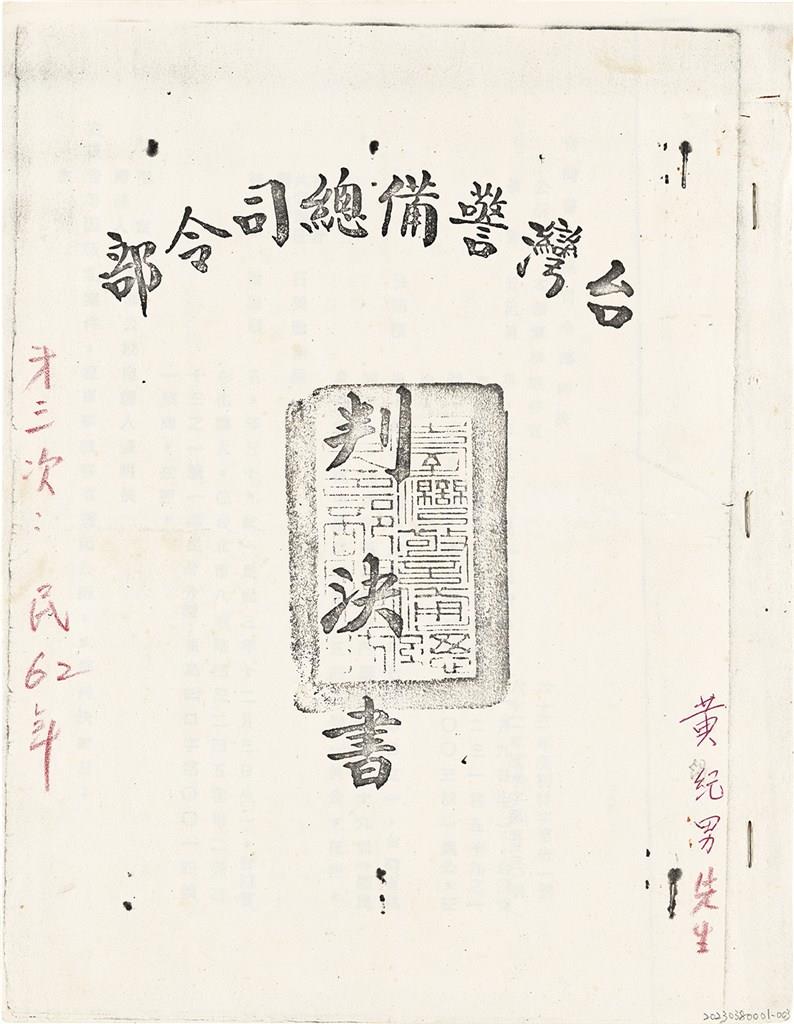 台灣警備總司令部
判決書
黃紀男先生
才三次：民62年
20230380001-003